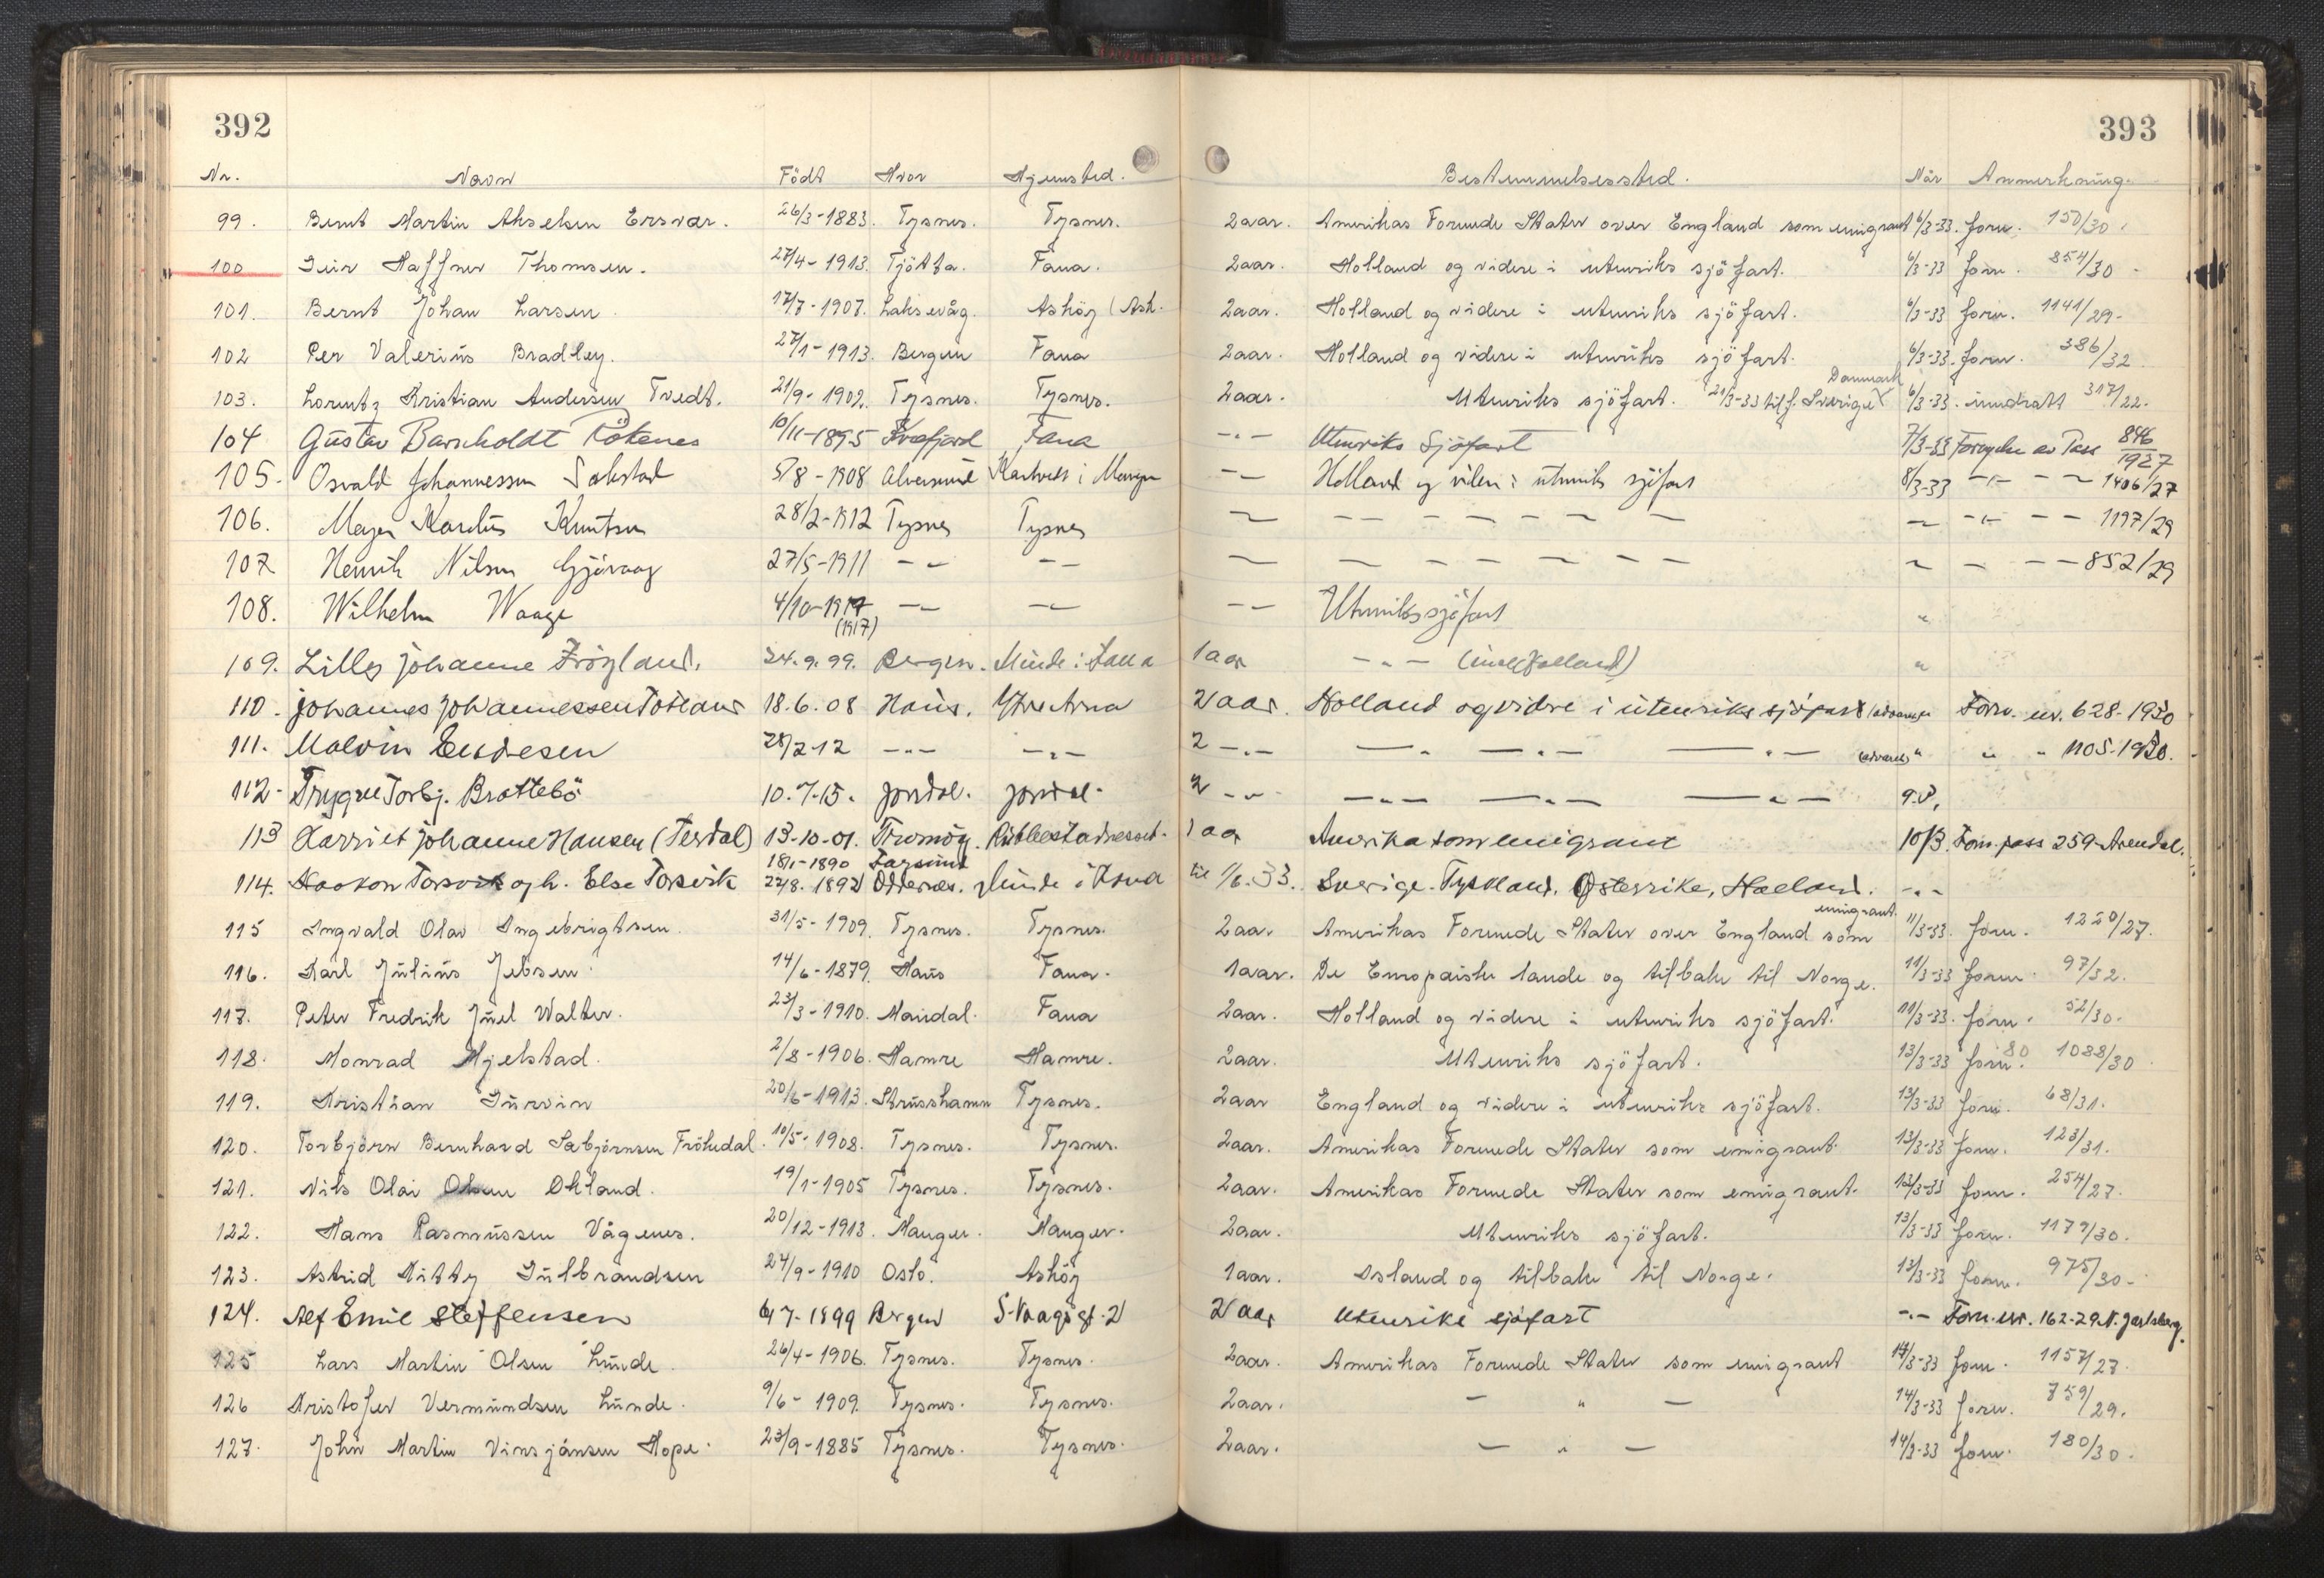 392
393
Nr. Navn Födt Hvor Hjemsted. Bestemmelsessted. Når Anmerkning.
99. Bernt Martin Akselsen Ersvær. 26/3-1883. Tysnes. Tysnes. 2aar. Amerikas Forenede Stater over England som emigrant 6/3-33. forn. 150/30.
100 Geir Haffner Thomsen. 27/4-1913. Tjötta. Fana. 2aar. Holland og videre i utenriks sjöfart. 6/3-33 forn. 854/30
101. Bernt Johan Larsen 17/7-1907. Laksevåg. Asköy (Ask. 2aar. Holland og videre i utenriks sjöfart. 6/3-33 forn. 1141/29.
102 Per Valerius Bradley. 27/1-1913. Bergen Fana 2aar. Holland og videre i utenriks sjöfart. 6/3-33. forn. 386/32.
Danmark
103. Lorentz Kristian Andersen Tvedt. 21/9-1902. Tysnes. Tysnes. 2aar. Utenriks sjöfart. 21/3-33 tilf. Sverige 6/3-33. inndratt 317/22.
104 Gustav Barnholdt Rötenes 10/11-1895 Kvæfjord Fana -"- Utenriks Sjöfart 7/3-33 Fornyelse av Pass 846/1927
105. Osvald Johannessen 5/8-1908 Alversund i Manger -"- Holland og viden i utenriks sjöfart 8/3-33 -"- - - 1406/27
106. Knutsen 28/2-1912 Tysnes Tysnes - - - - - - - - - -"- - - 1197/29
107. Henrik Nilsen Gjövaag 27/5-1911 -"- -"- - - - - - - - - - - - - 852/29
108. Wilhelm Waage 4/10-1917 -"- -"- -"- Utenriks sjöfart "
(1917)
109. Lilly Johanne Frögland. 24.9.99. Bergen. Minde i Fana 1 aar -"- (inkl. Holland) "
110. Johannes Johannessen Totland 18.6.08 Haus. Ytre Arna 2 aar. Holland og vidre i utenriks sjöfart Forn. nr. 628-1930
111. Malvin Endresen 28/2-12 -"- -"- 2 -"- -"- -"- -"- " " " 1105-1930.
112. Trygve Torbj. Brattebö 10.7.15. Jordal. Jordal. 2 -"- -"- -"- -"- 9.3.
113 Harriet Johanne Hansen (Terdal) 13-10-01. Tromöy. 1 aar Amerika som emigrant 10/3. Forn. pass 259-Arendal.
18/1-1890 Farsund
114. Haakon Torsvik og h. Else Torsvik 22/8. 1892 Oddernes. Minde i Fana til 1/6.33. Sverige. Tyskland, Österrike, Holland. -"-
emigrant.
115 Ingvald Olav Ingebrigtsen 31/5-1909. Tysnes. Tysnes. 2aar. Amerikas Forenede Stater over England som 11/3-33. forn. 1220/27.
116. Karl Julius Jebsen. 14/6-1879. Haus Fana. 1aar. De Europæiske lande og tilbake til Norge. 11/3-33 forn. 97/32.
117. Peter Fredrik Juel Walter. 23/3-1910. Mandal. Fana 2aar. Holland og videre i utenriks sjöfart. 11/3-33. forn. 52/30.
118. Monrad Hjelstad. 2/8-1906. Hamre Hamre. 2aar. Utenriks sjöfart. 13/3-33 forn. 1088/30
119. Kristian Gurvin 20/6-1913. Strusshamn Tysnes. 2aar England og videre i utenriks sjöfart. 13/3-33 forn. 68/31.
120. Torbjörn Bernhard Sæbjörnsen Frökedal. 10/5-1908. Tysnes. Tysnes. 2aar. Amerikas Forenede Stater som emigrant. 13/3-33 forn. 123/31.
121. Nils Olai Olsen Okland. 19/1-1905 Tysnes. Tysnes. 2aar. Amerikas Forenede Stater som emigrant. 13/3-33 forn. 254/27.
122. Hans Rasmussen Vågenes. 20/12-1913. Manger. Manger. 2aar. Utenriks sjöfart. 13/3-33 forn. 1179/30.
123. Astrid Kitty Gulbrandsen 24/9-1910 Oslo. Asköy 1aar. Island og tilbake til Norge. 13/3-33 forn. 975/30.
124. Alf Emil Steffensen 6/7-1899 Bergen 2 aar Utenriks sjöfart -"- Forn. nr. 162-29 N. Jarlsberg.
125 Lars Martin Olsen Lunde. 26/4-1906. Tysnes. Tysnes. 2aar. Amerikas Forenede Stater som emigrant 14/3-33 forn. 1157/27.
126 Kristofer Vermundsen Lunde. 9/6-1909. Tysnes. Tysnes. 2aar. - " - 14/3-33 forn. 759/29.
127. John Martin Vinsjansen Hope. 23/9-1885 Tysnes. Tysnes. 2aar. - " - 14/3-33 forn. 180/30.